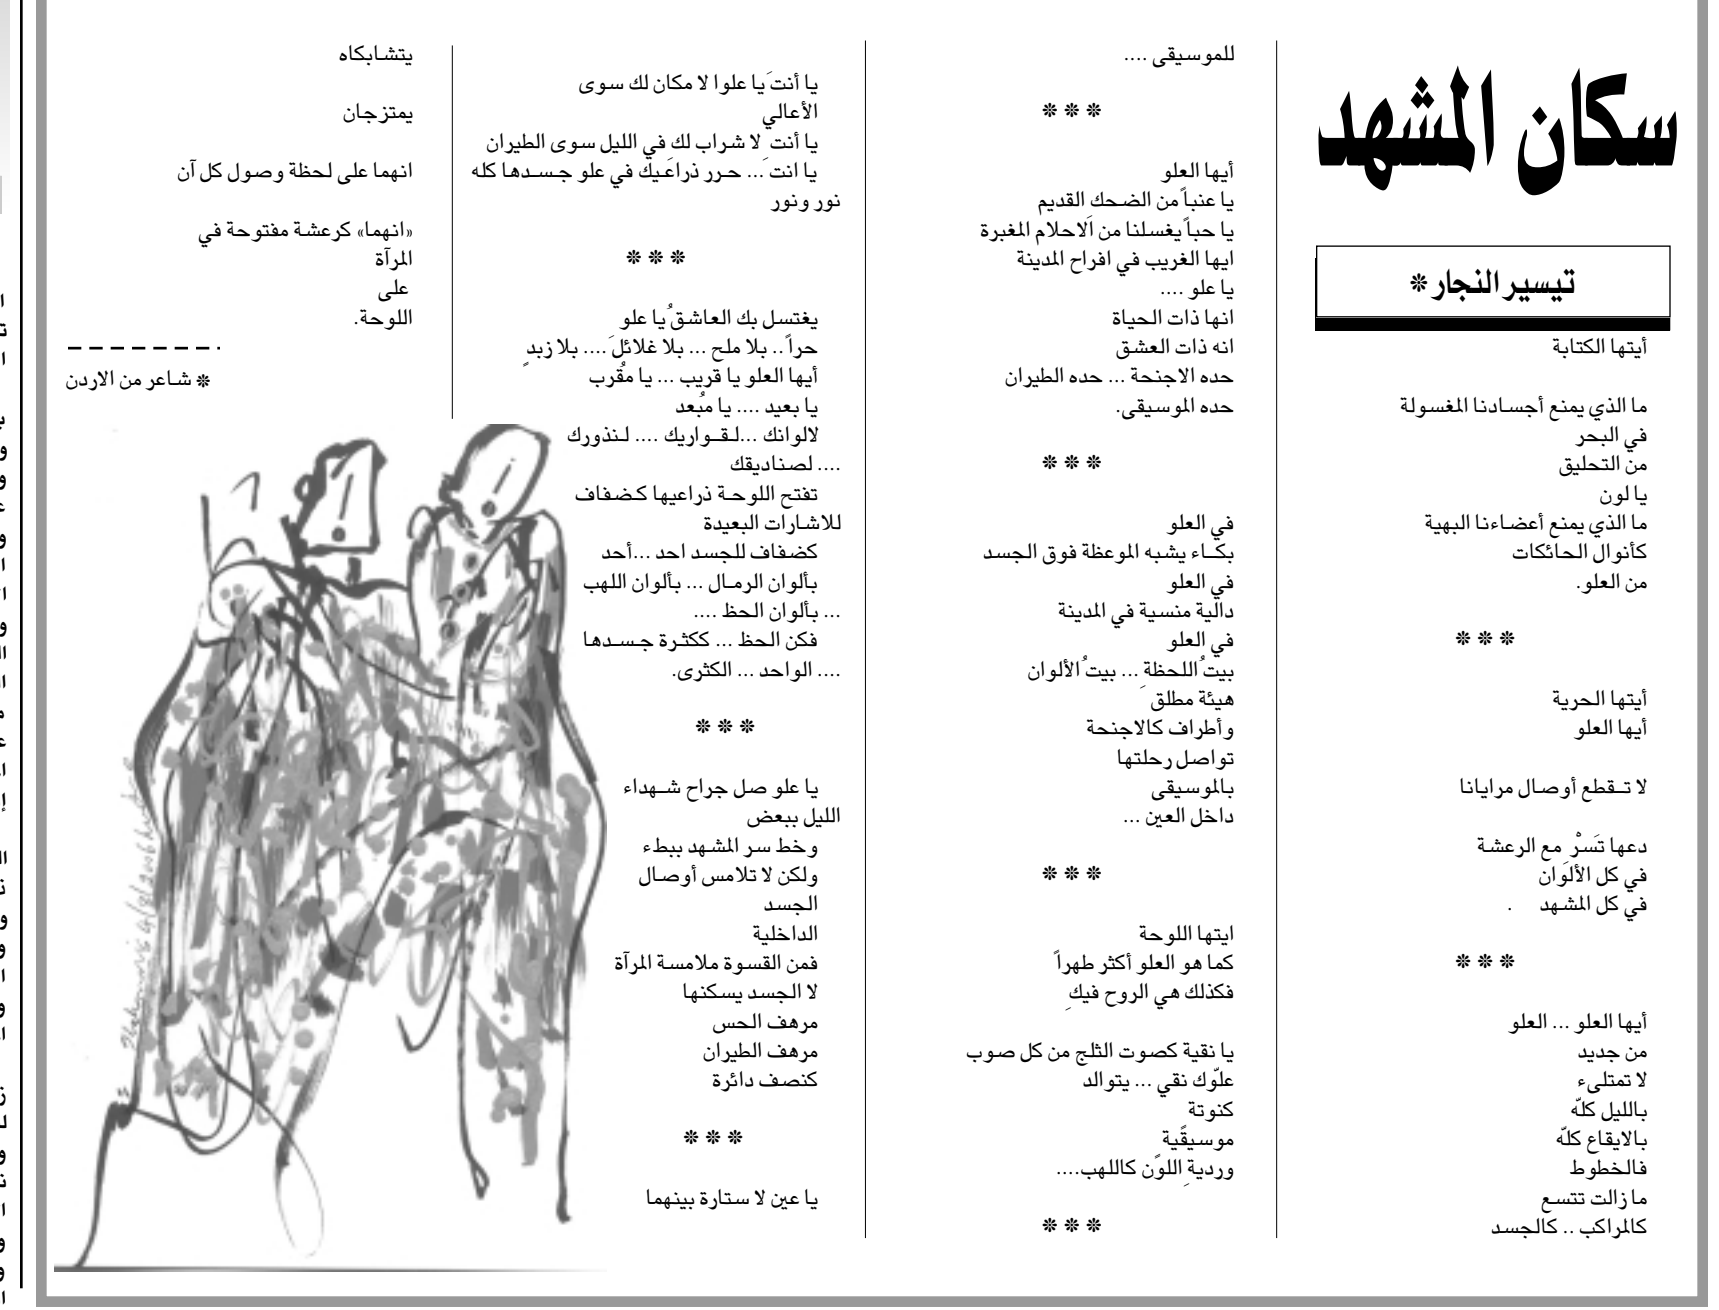 سكان المشهد
تيسير النجار *
أيتها الكتابة
ما الذي يمنع أجسادنا المغسولة
في البحر
من التحليق
يا لون
ما الذي يمنع أعضاءنا البهية
كأنوال الحائكات
من العلو.
* * *
أيتها الحرية
أيها العلو
لا تقطع أوصال مرايانا
دعها تَسرْ مع الرعشة
في كل الألوَان
في كل المشهد .
* * *
أيها العلو ... العلو
من جديد
لا تمتلىء
بالليل كلّه
بالايقاع كلّه
فالخطوط
مازالت تتسع
كالمراكب .. كالجسد
للموسيقى ....
* * *
أيها العلو
يا عنباً من الضحك القديم
يا حباً يغسلنا من الاحلام المغبرة
ايها الغريب في افراح المدينة
يا علو ....
انها ذات الحياة
انه ذات العشق
حده الاجنحة ... حده الطيران
حده الموسيقى.
* * *
في العلو
بكاء يشبه الموعظة فوق الجسد
في العلو
دالية منسية في المدينة
في العلو
بيتُ اللحظةِ ... بيتُ الألوان
هيئة مطلق
وأطراف كالاجنحة
تواصل رحلتها
بالموسيقى
داخل العين ...
* * *
ايتها اللوحة
كما هو العلو أكثر طهراً
فكذلك هي الروح فيكِ
يا نقية كصوت الثلج من كل صوب
علّوك نقي ... يتوالد
كنوتة
موسيقية
ورديةِ اللون كاللهب....
* * *
يا أنتَ يا علوا لا مكان لك سوى
الأعالي
يا أنتَ لا شراب لك في الليل سوى الطيران
يا انت ... حرر ذراعَيك في علو جسدها كله
نور ونور
* * *
يغتسل بك العاشقُ يا علو
حراً.. بلا ملح ... بلا غلائلَ .... بلا زبدٍ
أيها العلو يا قريب ... يا مُقرب
يا بعيد .... يا مبُعد
لالوانك ...لقواريك .... لنذورك
.... لصناديقك
تفتح اللوحة ذراعيها كضفاف
للاشارات البعيدة
كضفاف للجسد احد ...أحد
بألوان الرمال ... بألوان اللهب
... بألوان الحظ ....
فكن الحظ ... ككثرة جسدها
.... الواحد ... الكثرى.
* * *
يا علو صل جراح شهداء
الليل ببعض
وخط سر المشهد ببطء
ولكن لا تلامس أوصال
الجسد
الداخلية
فمن القسوة ملامسة المرآة
لا الجسد يسكنها
مرهف الحس
مرهف الطيران
كنصف دائرة
* * *
يا عين لا ستارة بينهما
يتشابكاه
يمتزجان
انهما على لحظة وصول كل آن
«انهما» كرعشة مفتوحة في
المرآة
على
اللوحة.
* شاعر من الاردن